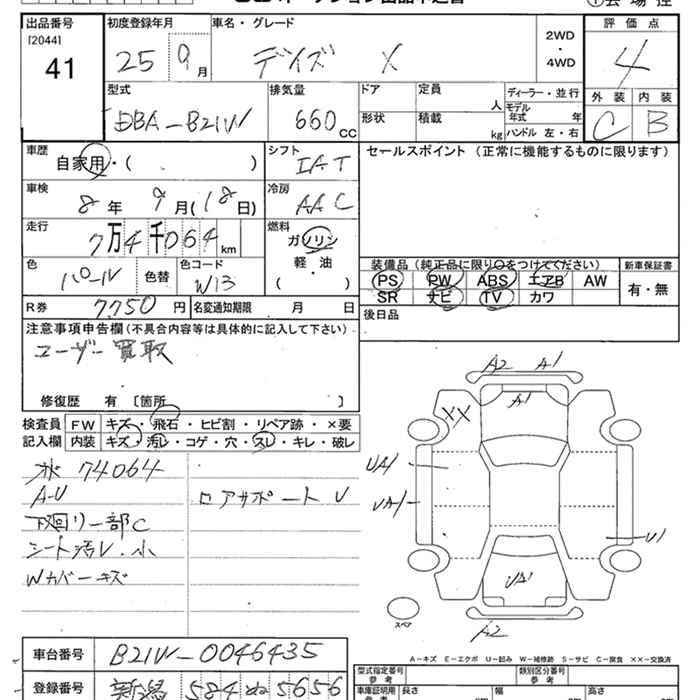 出品番号 初度登録年月 車名・グレード 2WD ・ 4WD 評価点
[2044]
41 25 9月 デイズ X 4
型式 排気量 ドア 定員 人 ディーラー・並行 外装 内装
DBA-B21W 660CC 形状 積載 kg モデル年式 年 C B
ハンドル 左・右
車歴 シフト セールスポイント (正常に機能するものに限ります)
自家用・( ) IAT
車検 冷房
8年 9月(18日) AAC
走行 燃料
7万4千064km ガソリン
軽・油
( )
色 パール 色替 色コード W13
装備品(純正品に限り○をつけてください) 新車保証書
PS PW ABS エアB AW 有・無
SR ナビ TV カワ
R券 7750円 名変通知期限 月 日 後日品
注意事項申告欄(不具合内容等は具体的に記入して下さい)
ユーザー買取
修復歴 有 [箇所 ]
検査員記入欄 FW キズ・飛石・ヒビ割・リペア跡・×要
内装 キズ・汚レ・コゲ・穴・スレ・キレ・破レ
74064
A-U ロアサポートU
下回リ一部C
シート汚レ・小
Wカバーキズ
A2 A1
A1
XX
UA1
UA1
U1
UA1
スペア
A2
A-キズ E-エクボ U-凹み W-補修跡 S-サビ C-腐食 XX-交換済
車台番号 B21W-0046435 型式指定番号 参考 類別区分番号 参考
登録番号 新潟 584 ぬ 5656 車庫証明用 参考 長さ 幅 高さ